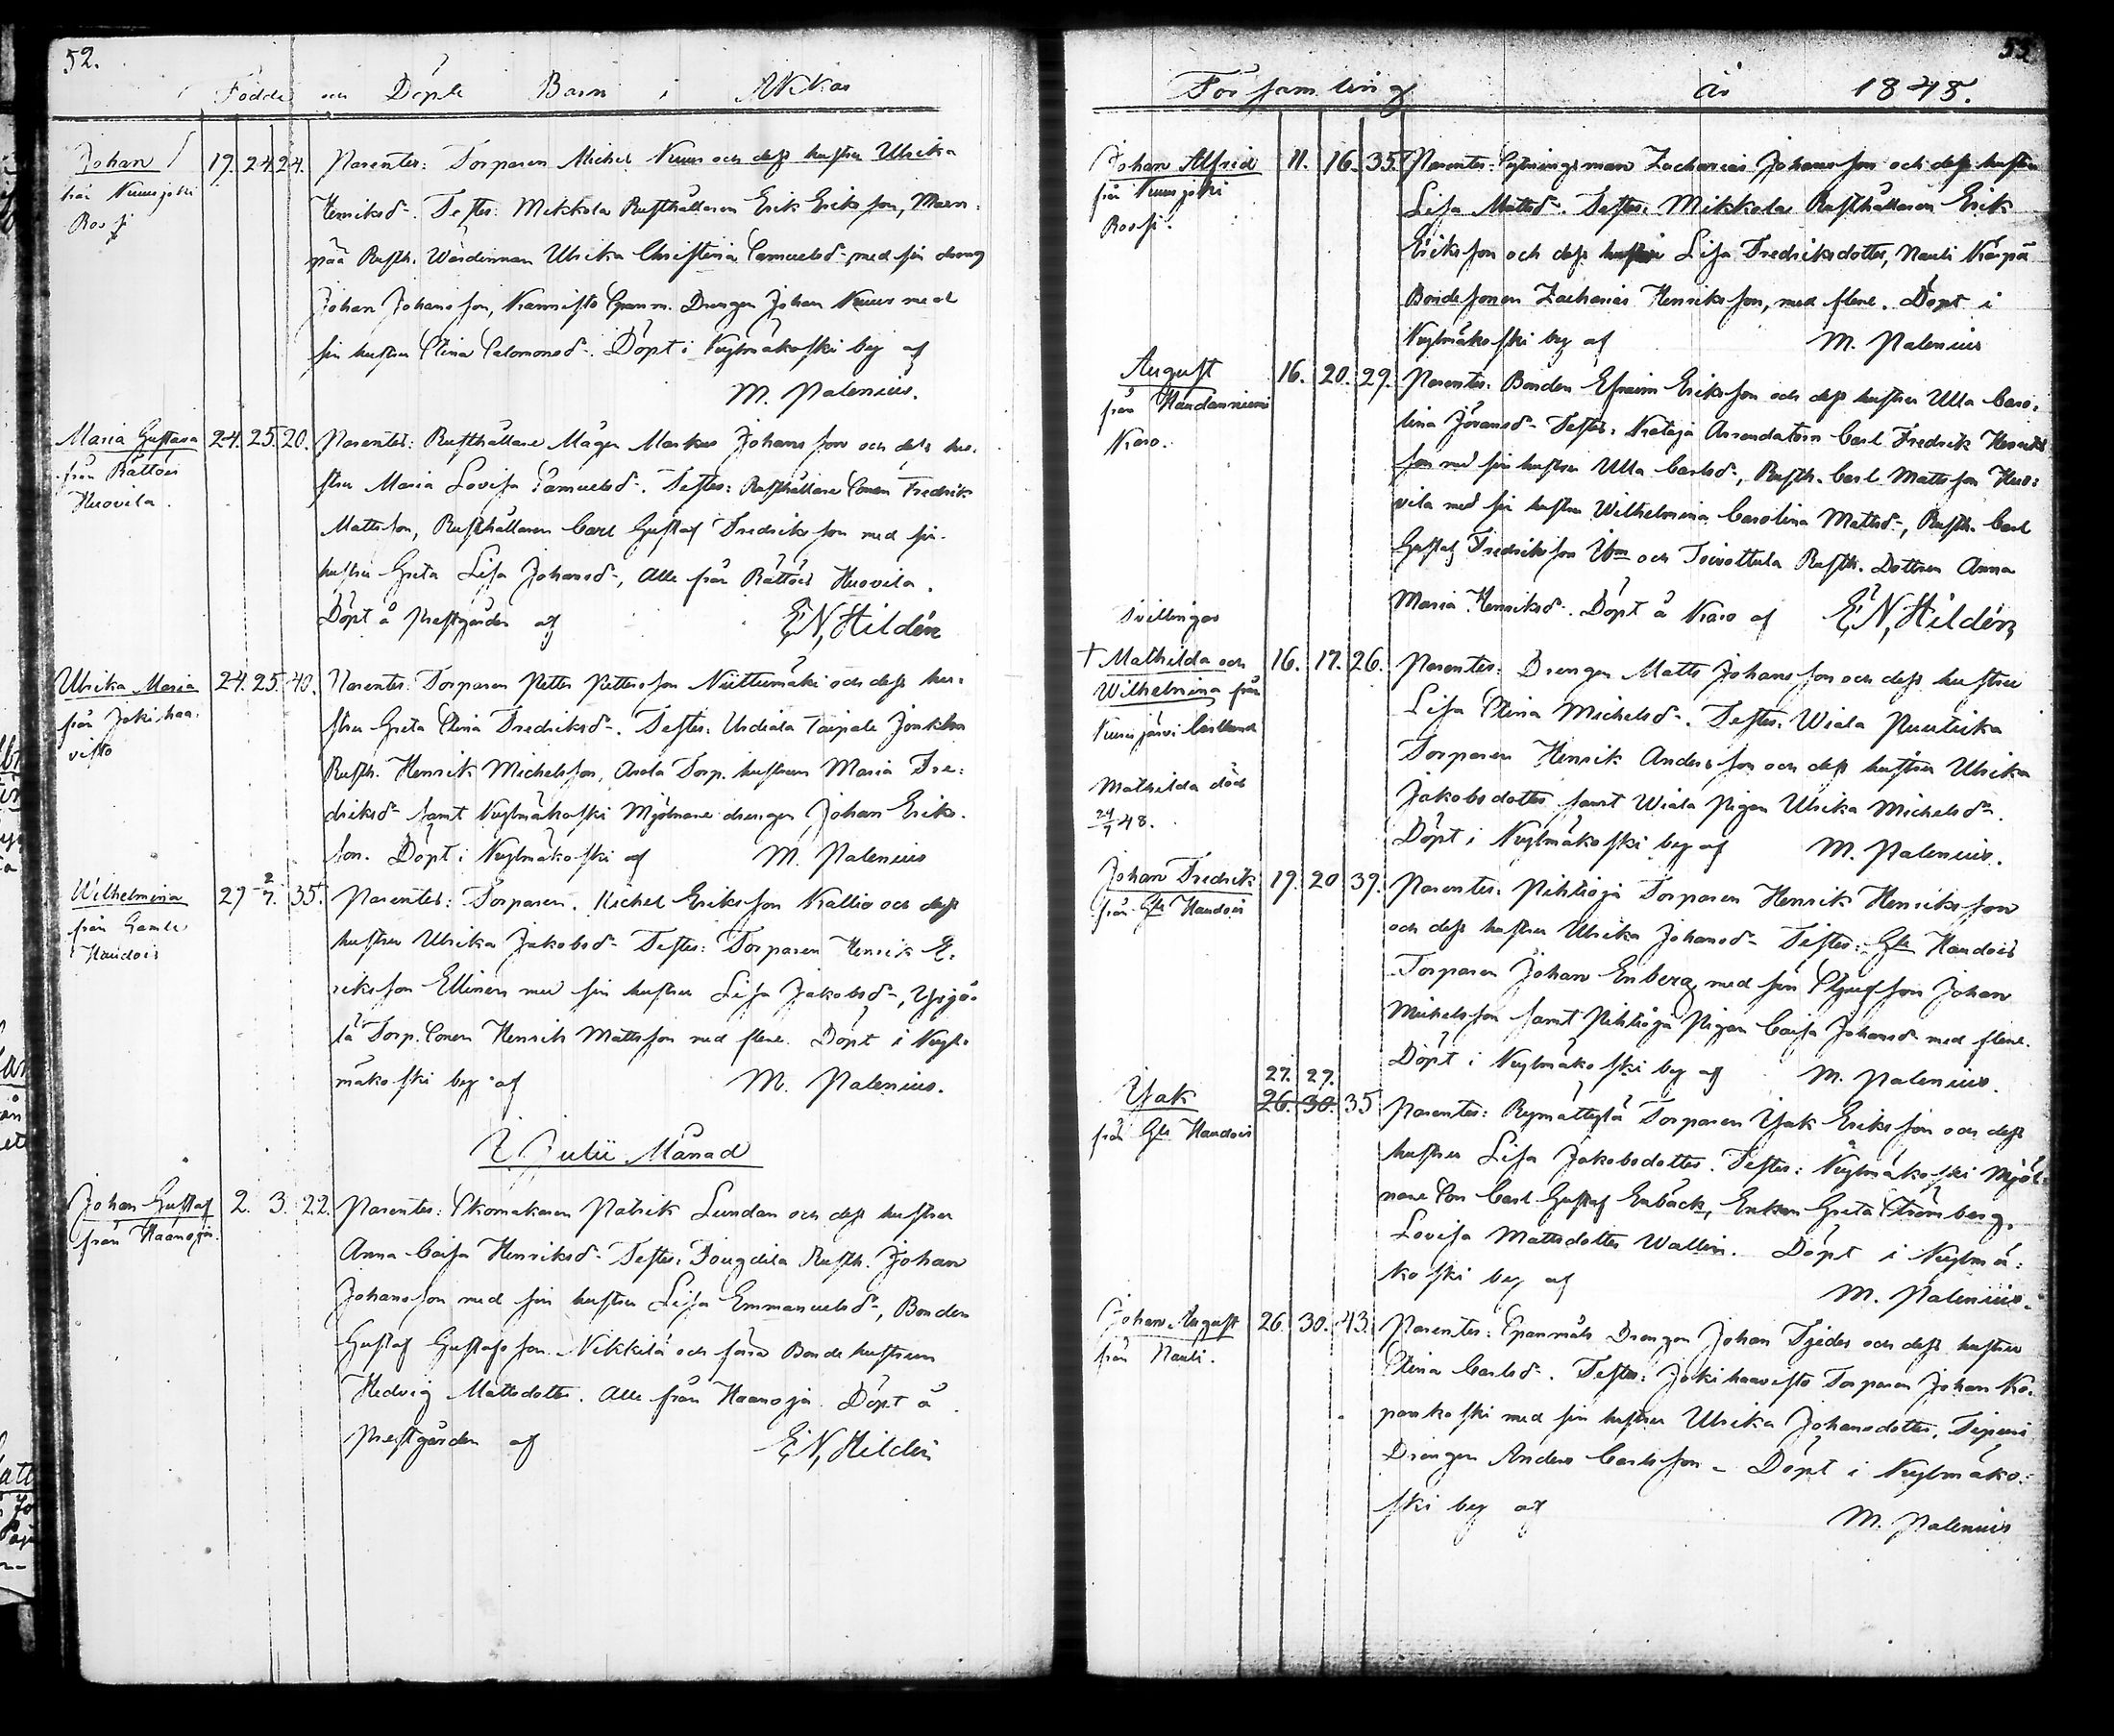 52.
Födde och Döpte Barn i Akkas
Johan
från Nuusjoki
Rossi
17. 24. 24.
Parentes: Torparen Michel Nuus och dess hustru Ulrika
Henriksdr. Testes: Mikkola Rusthållaren Erik Eriksson, Mann-
pää Rusth. Wärdinnan Ulrika Christina Samuelsdr med sin dreng
Johan Johansson, Kannisto Spanm. Drengen Johan Nuus med
sin hustru Stina Salomonsdr. Döpt i Kylmäkoski by af
M. Palenius.
Maria Gustava
från Rättöis
Huovila.
24. 25. 20.
Parentes: Rusthållare Mågen Markus Johansson och dess hu-
stru Maria Lovisa Samuelsdr. Testes: Rusthållare Sonen Fredrik
Mattsson, Rusthållaren Carl Gustaf Fredriksson med sin
hustru Greta Lisa Johansdr, Alle från Rättöis Huovila.
Döpt å Prestgården af
E. N. Hildén
Ulrika Maria
från Jokihaa-
visto
24. 25. 40.
Parentes: Torparen Petter Pettersson Niittumäki och dess hu-
stru Greta Stina Fredriksdr. Testes: Urdiala Taipale Jonkka
Rusth. Henrik Michelsson, Anola Torp. hustrun Maria Fre-
driksdr samt Kylmäkoski Mjölnare drengen Johan Eriks-
son. Döpt i Kylmäkoski af
M. Palenius
Wilhelmina
från Gamle
Haudois
29 2/7. 35.
Parentes: Torparen Michel Eriksson Kallio och dess
hustru Ulrika Jakobsdr Testes: Torparen Henrik E-
riksson Ellinen med sin hustru Lisa Jakobsdr, Yrjö-
lä Torp. Sonen Henrik Mattsson med flere. Döpt i Kyl-
mäkoski by af
M. Palenius.
I Julii Månad
Johan Gustaf
från Haanoja.
2. 3. 22.
Parentes: Skomakaren Patrik Lundan och dess hustru
Anna Caisa Henriksdr Testes: Fougdila Rusth. Johan
Johansson med sin hustru Lisa Emmanuelsdr, Bonden
Gustaf Gustafsson Nikkilä och förra Bonde hustrun
Hedvig Mattsdotter. Alle från Haanoja. Döpt å
Prestgården af
E. N. Hildén
53.
Församling år 1848.
Johan Alfrid
från Nuusjoki
Rossi.
11. 16. 35.
Parentes: Sytningsman Zacharias Johansson och dess hustru
Lisa Mattsdr. Testes: Mikkola Rusthållaren Erik
Eriksson och dess hustru Lisa Fredriksdotter, Nauli Kärpä
Bondesonen Zacharias Henriksson, med flere. Döpt i
Kylmäkoski by af
M. Palenius
August
från Haudanniemi
Karo.
16. 20. 29.
Parentes: Bonden Efraim Eriksson och dess hustru Ulla Caro-
lina Jöransdr Testes: Kataja Arrendatorn Carl Fredrik Henriks-
son med sin hustru Ulla Carlsdr, Rusth. Carl Mattsson Huo-
vila med sin hustru Wilhelmina Carolina Mattsdr, Rusth. Carl
Gustaf Fredriksson Ibm och Toivottula Rusth. Dottren Anna
Maria Henriksdr. Döpt å Karo af
E. N. Hildén
Tvillingar
† Mathilda och
Wilhelmina från
Nuusjärvi
Mathilda död
24/7 48.
16. 17. 26.
Parentes: Drengen Matts Johansson och dess hustru
Lisa Stina Michelsdr. Testes: Wiala Puutikka
Torparen Henrik Andersson och dess hustru Ulrika
Jakobsdotter samt Wiala Pigan Ulrika Michelsdr.
Döpt i Kylmäkoski by af
M. Palenius.
Johan Fredrik
från Gle Haudois
19. 20 39.
Parentes: Pihtioja Torparen Henrik Henriksson
och dess hustru Ulrika Johansdr Testes: Gle Haudois
Torparen Johan Enberg med sin Styufson Johan
Michelsson samt Pihtioja Pigan Caisa Johansdr med flere.
Döpt i Kylmäkoski by af
M. Palenius.
Isak
från Gle Haudois
27. 27.
26. 30. 35
Parentes: Reymättylä Torparen Isak Eriksson och dess
hustru Lisa Jakobsdotter. Testes: Kylmäkoski Mjöl-
nare Son Carl Gustaf Enbäck, Enkan Greta Strömberg,
Lovisa Mattsdotter Wallin. Döpt i Kylmä-
koski by af
M. Palenius.
Johan August
från Nauli.
26. 30. 43.
Parentes: Spannmåls Drengen Johan Tjeder och dess hustru
Stina Carlsdr. Testes: Jokihaavisto Torparen Johan Ko-
pankoski med sin hustru Ulrika Johansdotter, Sipura
Drengen Anders Carlsson – Döpt i Kylmäko-
ski by af
M. Palenius